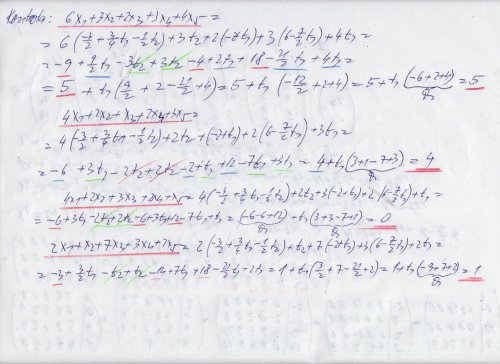 Kontrola: 6x₁+3x₂+2x₃+3x₄+4x₅=
=6(-3/2+3/4t₁-1/2t₂)+3t₂+2(-2+t₁)+3(6-7/2t₁)+4t₁=
=-9+9/2t₁-3t₂+3t₂-4+2t₁+18-21/2t₁+4t₁=
=5+t₁(9/2+2-21/2+4)=5+t₁(-12/2+2+4)=5+t₁(-6+2+4)=5
0
4x₁+2x₂+x₃+2x₄+3x₅=
=4(-3/2+3/4t₁-1/2t₂)+2t₂+(-2+t₁)+2(6-7/2t₁)+3t₁=
=-6+3t₁-2t₂+2t₂-2+t₁+12-7t₁+3t₁=4+t₁(3+1-7+3)=4
0
4x₁+2x₂+3x₃+2x₄+x₅=4(-3/2+3/4t₁-1/2t₂)+2t₂+3(-2+t₁)+2(6-7/2t₁)+t₁=
=-6+3t₁-2t₂+2t₂-6+3t₁+12-7t₁+t₁=(-6-6+12)+t₁(3+3-7+1)=0
2x₁+x₂+7x₃+3x₄+2x₅=2(-3/2+3/4t₁-1/2t₂)+t₂+7(-2+t₁)+3(6-7/2t₁)+2t₁=
=-3+3/2t₁-t₂+t₂-14+7t₁+18-21/2t₁+2t₁=1+t₁(3/2+7-21/2+2)=1+t₁(-9+7+2)=1
0